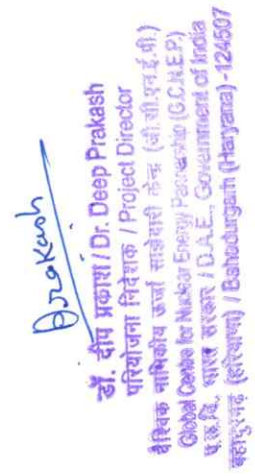 Dprakash
डॉ. दीप प्रकाश / Dr. Deep Prakash
परियोजना निदेशक / Project Director
वैश्विक नाभिकीय ऊर्जा साझेदारी केन्द्र (जी.सी.एन.ई.पी.)
Global Centre for Nuclear Energy Partnership (G.C.N.E.P.)
प.ऊ.वि., भारत सरकार / D.A.E., Government of India
बहादुरगढ़ (हरियाणा) / Bahadurgarh (Haryana) -124507